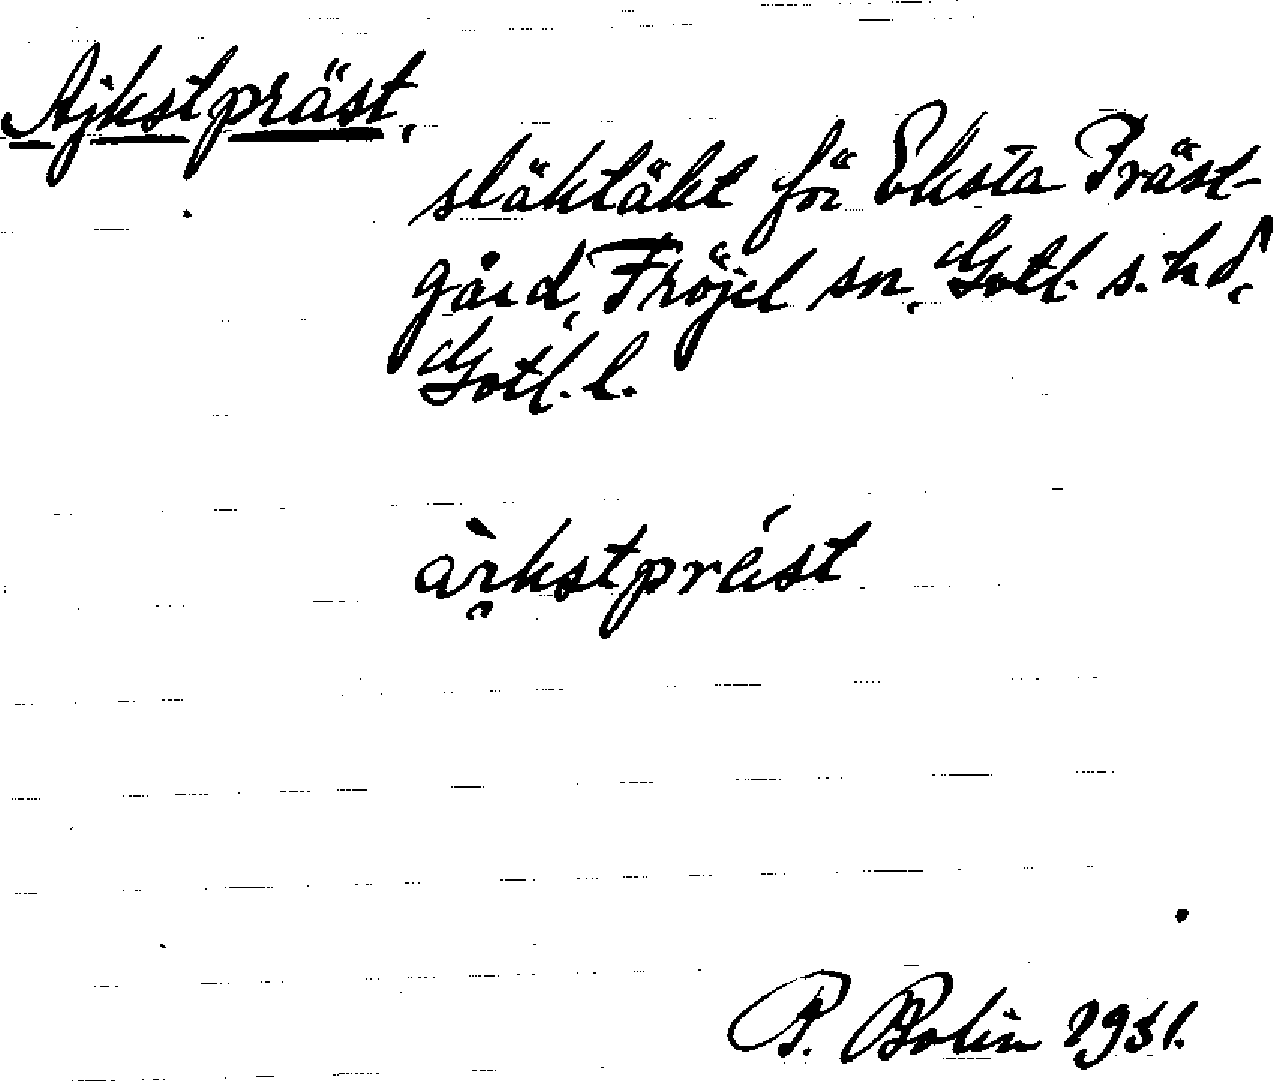 Ajkstpräst,
släktäkt för Eksta Präst-
gård, Fröjel sn, Gotl. s. hd,
Gotl. l.
àrkstpräst
P. Bolin 1931.